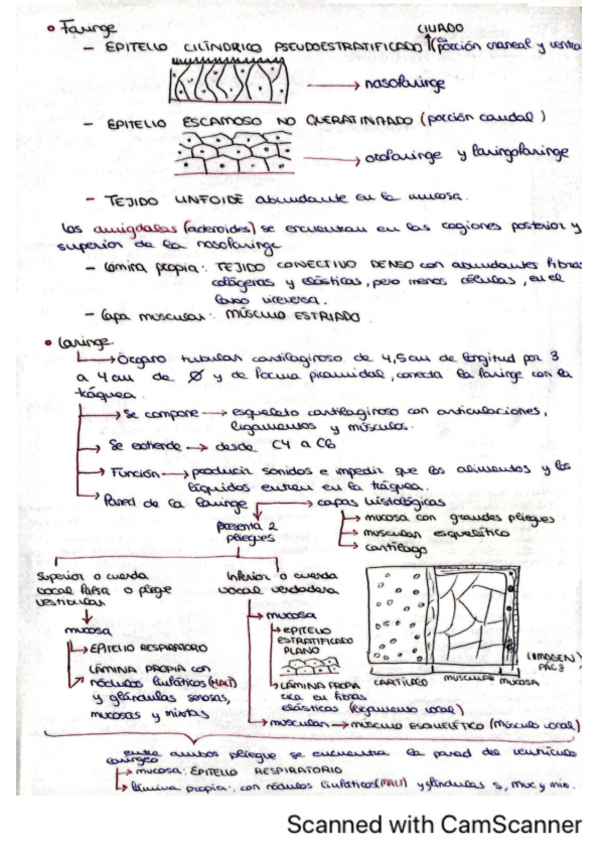 • Faringe
CILIADO
- EPITELIO CILÍNDRICO PSEUDOESTRATIFICADO (porción craneal y ventra
→ nasofaringe
- EPITELIO ESCAMOSO NO QUERATINIZADO (porción caudal)
→ orofaringe y laringofaringe
- TEJIDO LINFOIDE abundante en la mucosa.
Las amígdalas (adenoides) se encuentran en las regiones posterior y
superior de la nasofaringe
- lámina propia: TEJIDO CONECTIVO DENSO con abundantes fibras
colágenas y elásticas, pero menos células, en el
viceversa.
- Capa muscular: MÚSCULO ESTRIADO
• Laringe
→ Órgano tubular cartilaginoso de 4,5cm de longitud por 3
a 4cm de Ø y de forma piramidal, conecta la faringe con la
tráquea.
→ Se compone → esqueleto cartilaginoso con articulaciones,
ligamentos y músculos.
→ Se extiende → desde C4 a C6
→ Función → producir sonidos e impedir que los alimentos y los
líquidos entren en la tráquea.
→ Pared de la laringe → capas histológicas
presenta 2
pliegues
→ mucosa con grandes pliegues
→ muscular esquelético
→ cartílago
Superior o cuerda
vocal falsa o pliege
vestibular
mucosa
→ EPITELIO RESPIRATORIO
LÁMINA PROPIA con
nódulos linfáticos (MALT)
y glándulas serosas,
mucosas y mixtas
Inferior o cuerda
vocal verdadera
→ mucosa
→ EPITELIO
ESTRATIFICADO
PLANO
→ LÁMINA PROPIA
rica en fibras
elásticas (ligamento vocal)
→ muscular → MÚSCULO ESQUELÉTICO (Músculo vocal)
CARTÍLAGO MUSCULAR MUCOSA
(IMAGEN
PÁG 3
entre ambos pliegue se encuentra la pared del ventrículo
laríngeo
→ mucosa: EPITELIO RESPIRATORIO
→ lámina propia: con nódulos linfáticos (MALT) y glándulas s, muc y mix.
Scanned with CamScanner